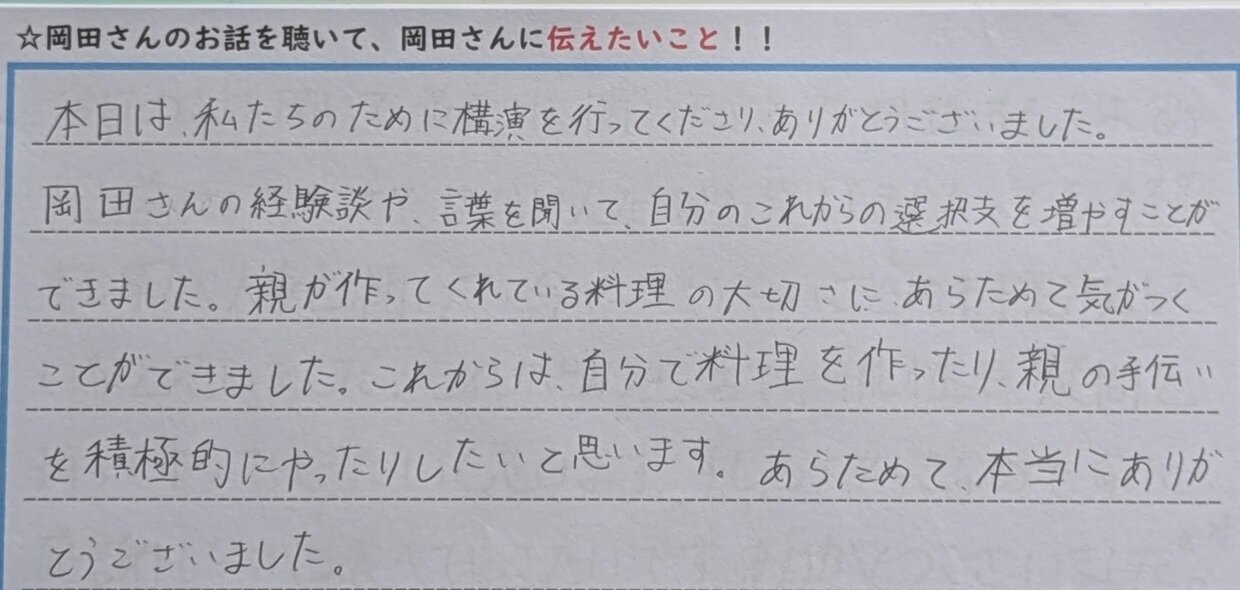 ☆岡田さんのお話を聴いて、岡田さんに伝えたいこと！！
本日は、私たちのために構演を行ってくださり、ありがとうございました。
岡田さんの経験談や、言葉を聞いて、自分のこれからの選択支を増やすことが
できました。親が作ってくれている料理の大切さに、あらためて気がつく
ことができました。これからは、自分で料理を作ったり、親の手伝い
を積極的にやったりしたいと思います。あらためて、本当にありが
とうございました。